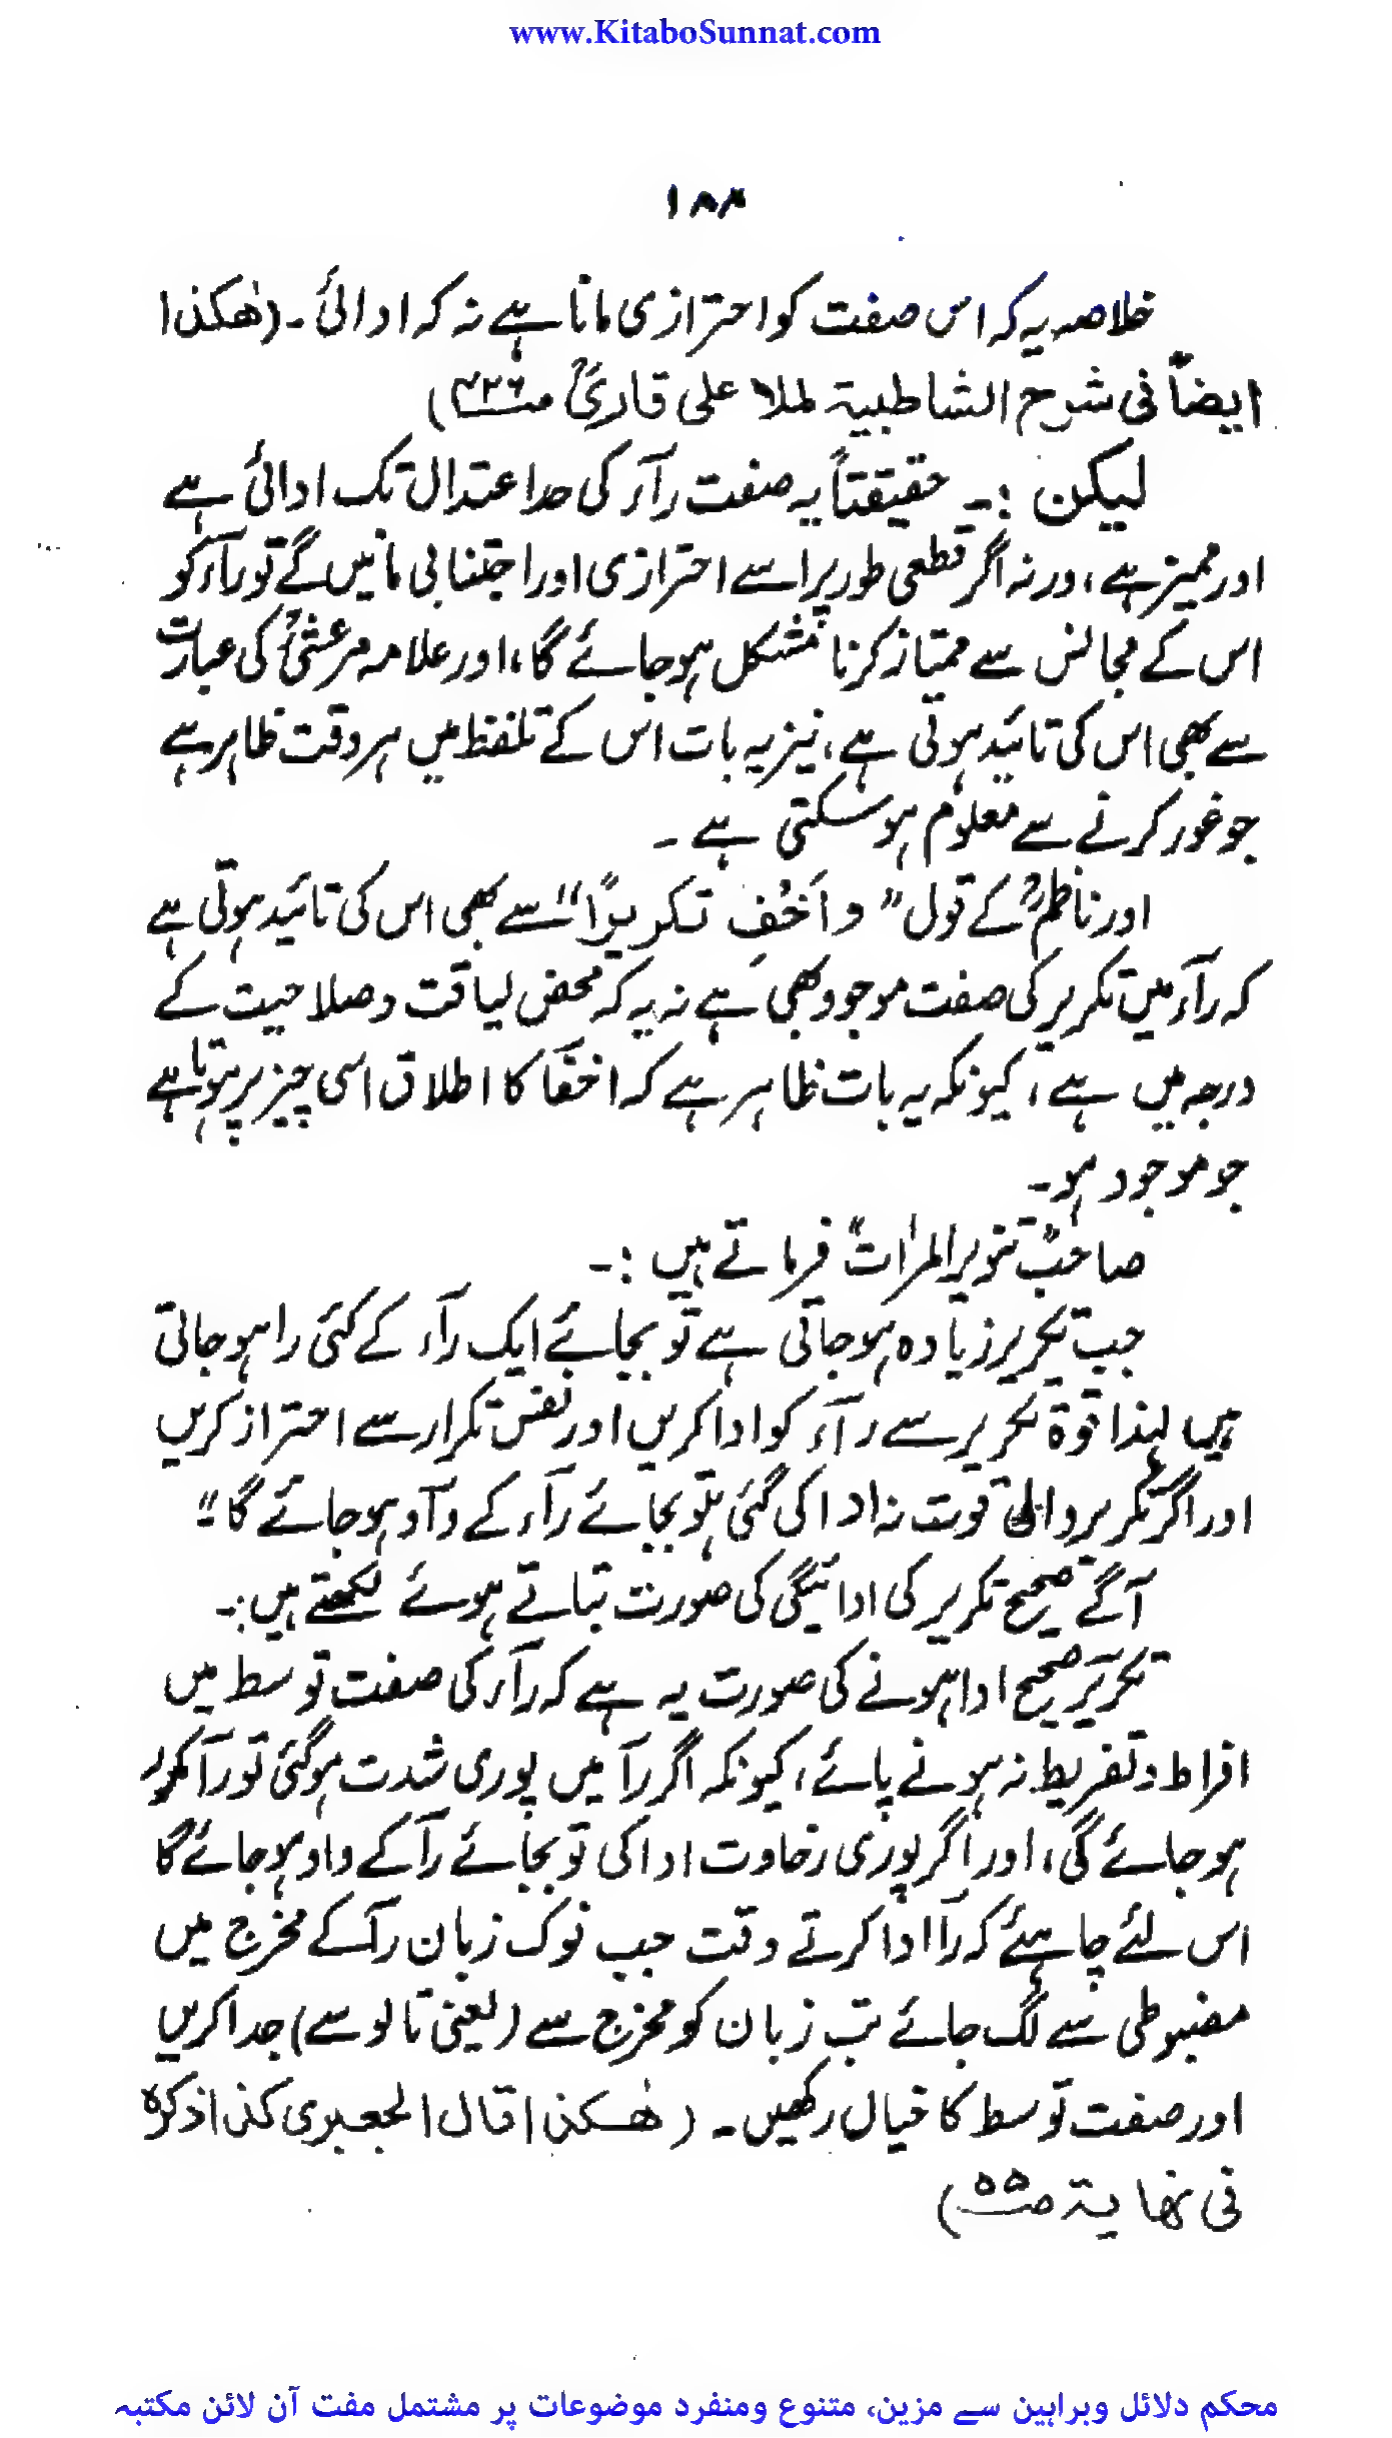 www.KitaboSunnat.com
۱۸۴
خلاصہ یہ کہ اس صفت کو احترازی مانا ہے نہ کہ ادائی ۔ (ھٰکذا
ایضاً فی شرح الشاطبیۃ لملا علی قاریؒ صـ۴۳۶)
لیکن :۔ حقیقتاً یہ صفت رآء کی حد اعتدال تک ادائی ہے
اور ممیز ہے، ورنہ اگر قطعی طور پر اسے احترازی اور اجتنابی مانیں گے تو رآء کو
اس کے مجانس سے ممتاز کرنا مشکل ہو جائے گا، اور علامہ مرعشیؒ کی عبارت
سے بھی اس کی تائید ہوتی ہے، نیز یہ بات اس کے تلفظ میں ہر وقت ظاہر ہے
جو غور کرنے سے معلوم ہو سکتی ہے ۔
اور ناظمؒ کے قول ” وَاَخْفِ تکریرًا“ سے بھی اس کی تائید ہوتی ہے
کہ رآء میں تکریر کی صفت موجود بھی ہے نہ یہ کہ محض لیاقت و صلاحیت کے
درجہ میں ہے، کیونکہ یہ بات ظاہر ہے کہ اخفا کا اطلاق اسی چیز پر ہوتا ہے
جو موجود ہو۔
صاحبؒ تنویر المراٰت فرماتے ہیں :۔
جب تکریر زیادہ ہو جاتی ہے تو بجائے ایک رآء کے کئی را ہو جاتی
ہیں لہذا قوۃ تکریر سے رآء کو ادا کریں اور نفس تکرار سے احتراز کریں
اور اگر تکریر والی قوت نہ ادا کی گئی تو بجائے رآء کے وآو ہو جائے گا ۔“
آگے صحیح تکریر کی ادائیگی کی صورت بتاتے ہوئے لکھتے ہیں :۔
تکریر صحیح ادا ہونے کی صورت یہ ہے کہ رآء کی صفت توسط میں
افراط و تفریط نہ ہونے پائے، کیونکہ اگر رآ میں پوری شدت ہو گئی تو رآ مکرر
ہو جائے گی، اور اگر پوری رخاوت ادا کی تو بجائے رآ کے واو ہو جائے گا
اس لئے چاہئے کہ رآ ادا کرتے وقت جب نوک زبان رآ کے مخرج میں
مضبوطی سے لگ جائے تب زبان کو مخرج سے (یعنی تالو سے) جدا کریں
اور صفت توسط کا خیال رکھیں ۔ (ھٰکذا قال الجعبری کذا ذکرہ
فی نھایۃ صـ۵۵)
محکم دلائل وبراہین سے مزین، متنوع ومنفرد موضوعات پر مشتمل مفت آن لائن مکتبہ